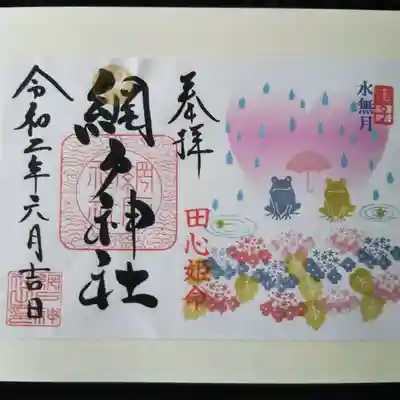 水無月
奉拝
田心姫命
網戸神社
令和二年六月吉日